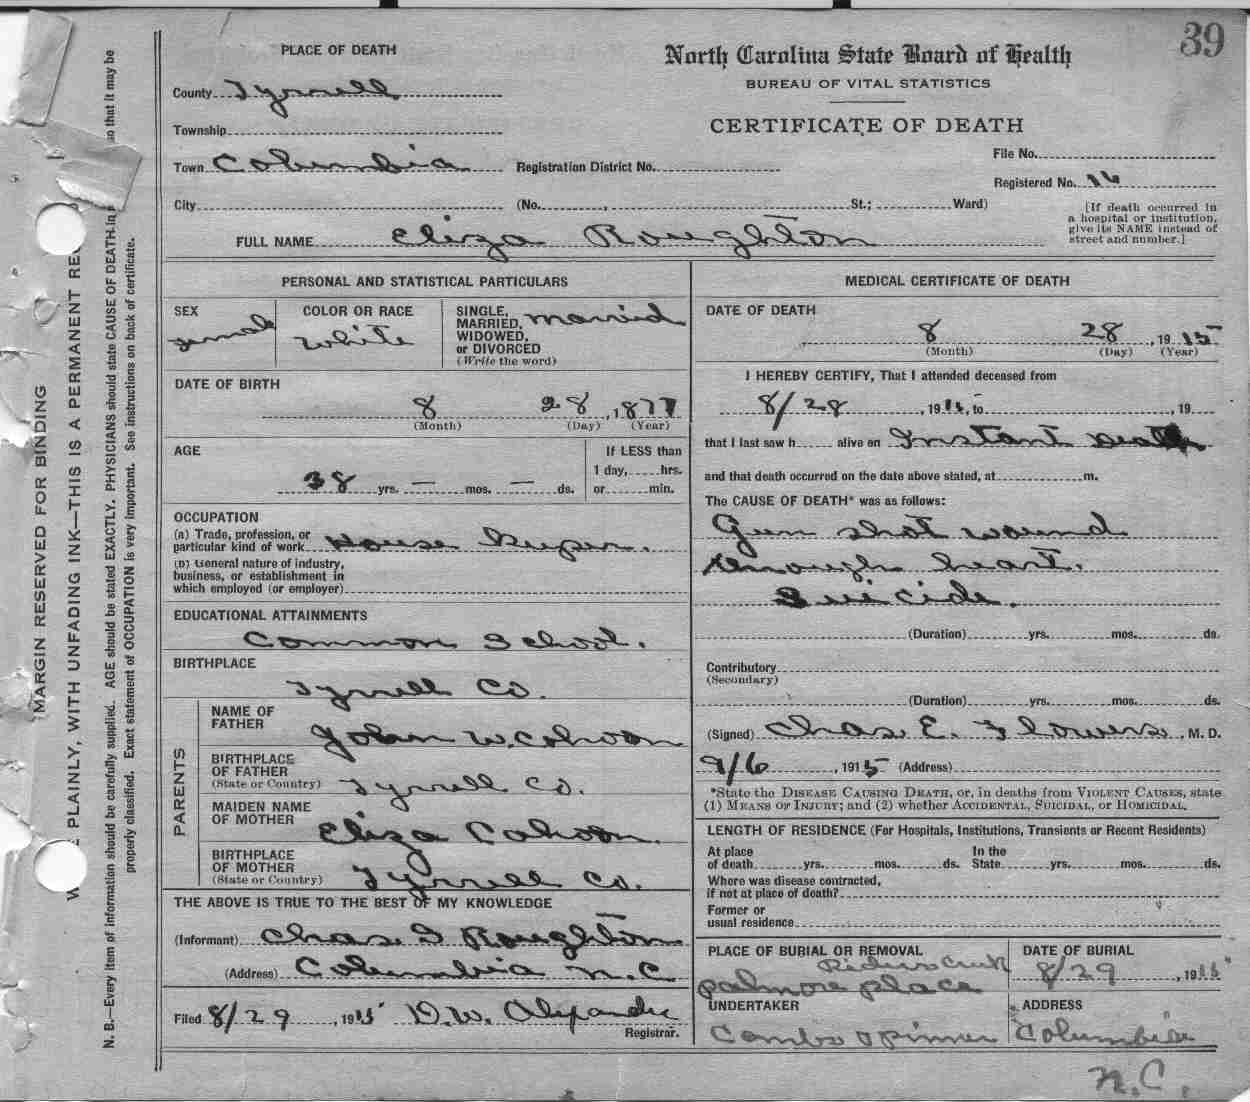 39
PLACE OF DEATH
North Carolina State Board of Health
BUREAU OF VITAL STATISTICS
CERTIFICATE OF DEATH
County Tyrrell
Township
Town Columbia Registration District No.
File No.
Registered No. 16
City (No. , St.; Ward)
[If death occurred in
a hospital or institution,
give its NAME instead of
street and number.]
FULL NAME Eliza Roughton
PERSONAL AND STATISTICAL PARTICULARS
SEX
female
COLOR OR RACE
White
SINGLE,
MARRIED,
WIDOWED,
or DIVORCED
(Write the word)
Married
DATE OF BIRTH
8 28, 1877
(Month) (Day) (Year)
AGE
38 yrs. — mos. — ds.
If LESS than
1 day, hrs.
or min.
OCCUPATION
(a) Trade, profession, or
particular kind of work House Keeper.
(b) General nature of industry,
business, or establishment in
which employed (or employer)
EDUCATIONAL ATTAINMENTS
Common School.
BIRTHPLACE
Tyrrell Co.
PARENTS
NAME OF
FATHER
John W. Cohoon
BIRTHPLACE
OF FATHER
(State or Country)
Tyrrell Co.
MAIDEN NAME
OF MOTHER
Eliza Cohoon.
BIRTHPLACE
OF MOTHER
(State or Country)
Tyrrell Co.
THE ABOVE IS TRUE TO THE BEST OF MY KNOWLEDGE
(Informant) Chas Roughton
(Address) Columbia N.C
Filed 8/29, 1915 D.W. Alexander
Registrar.
MEDICAL CERTIFICATE OF DEATH
DATE OF DEATH
8 28, 1915
(Month) (Day) (Year)
I HEREBY CERTIFY, That I attended deceased from
8/28, 1915, to , 19
that I last saw h alive on Instant Death
and that death occurred on the date above stated, at m.
The CAUSE OF DEATH* was as follows:
Gun shot wound
through heart.
Suicide.
(Duration) yrs. mos. ds.
Contributory
(Secondary)
(Duration) yrs. mos. ds.
(Signed) Chas E. Flowers, M. D.
9/6, 1915 (Address)
*State the DISEASE CAUSING DEATH, or, in deaths from VIOLENT CAUSES, state
(1) MEANS OF INJURY; and (2) whether ACCIDENTAL, SUICIDAL, or HOMICIDAL.
LENGTH OF RESIDENCE (For Hospitals, Institutions, Transients or Recent Residents)
At place
of death yrs. mos. ds.
In the
State yrs. mos. ds.
Where was disease contracted,
if not at place of death?
Former or
usual residence
PLACE OF BURIAL OR REMOVAL
Riders Creek
Palmore place
DATE OF BURIAL
8/29, 1915
UNDERTAKER
ADDRESS
Columbia
N.C.
MARGIN RESERVED FOR BINDING
PLAINLY, WITH UNFADING INK—THIS IS A PERMANENT
N. B.—Every item of information should be carefully supplied. AGE should be stated EXACTLY. PHYSICIANS should state CAUSE OF DEATH in so that it may be
properly classified. Exact statement of OCCUPATION is very important. See instructions on back of certificate.